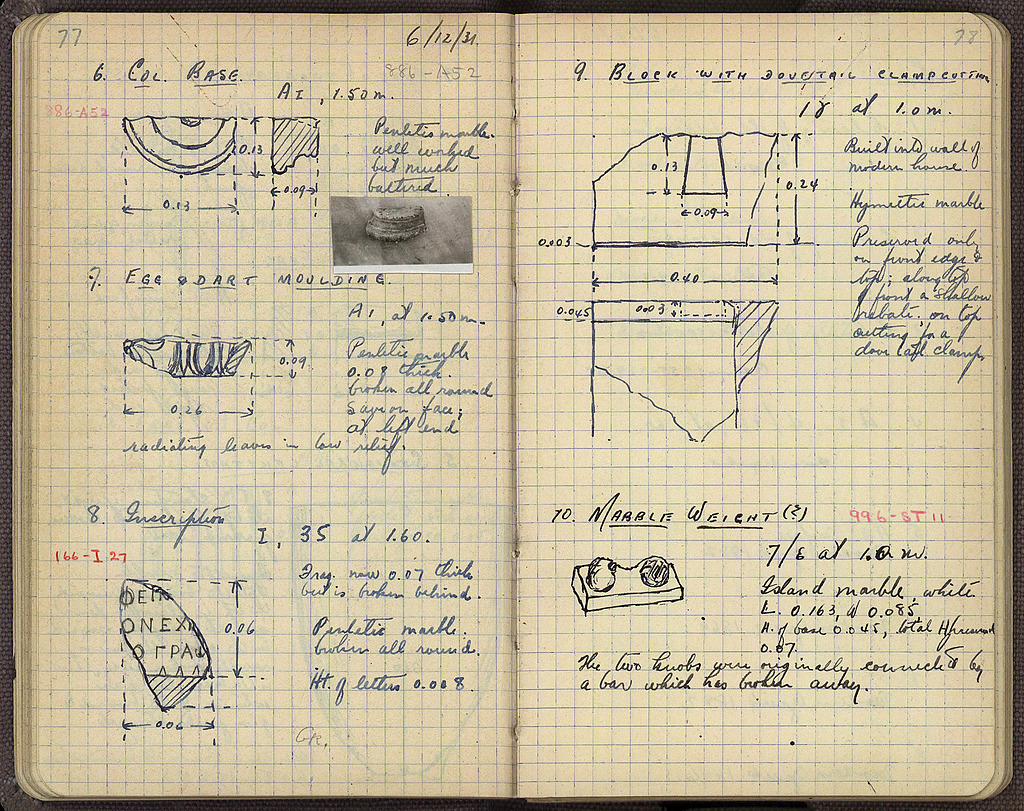 77
6/12/31.
6. COL. BASE.
886-A52
886-A52
AI, 1.50 m.
Pentelic marble.
well worked
but much
battered.
0.13
0.09
0.13
7. EGG & DART MOULDING.
AI, at 1.50 m.
Pentelic marble
0.08 thick.
broken all round
save on face;
at left end
radiating leaves in low relief.
0.09
0.26
8. Inscription
I, 35 at 1.60.
166-I 27
Frag. now 0.07 thick
but is broken behind.
Pentelic marble.
broken all round.
Ht. of letters 0.008.
ΟΝΕΧ
Ο ΓΡΑ
ΛΛΛ
0.06
0.06
Gk.
78
9. BLOCK WITH DOVETAIL CLAMPCUTTING
18 at 1.0 m.
Built into wall of
modern house.
Hymettic marble
Preserved only
on front edge &
top; along top
of front a shallow
rebate; on top
cutting for a
dove tail clamp
0.13
0.24
0.09
0.003
0.40
0.045
0.003
10. MARBLE WEIGHT (?)
996-ST 11.
7/E at 1.0 m.
Island marble, white
L. 0.163, W 0.085
H. of base 0.045, total H preserved
0.07.
The two knobs were originally connected by
a bar which has broken away.